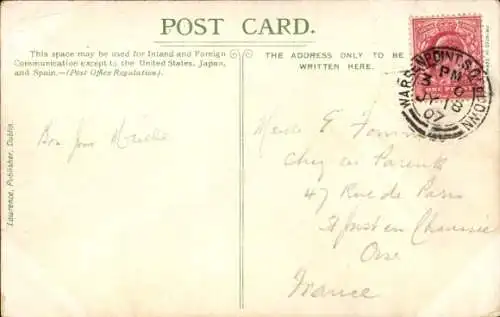 POST CARD.
This space may be used for Inland and Foreign
Communication except to the United States, Japan,
and Spain.—(Post Office Regulation).
THE ADDRESS ONLY TO BE
WRITTEN HERE.
Lawrence, Publisher, Dublin.
WARRENPOINT S.O. CO DOWN
PM
07
Bon Jour
E
Chez ses Parents
47 Rue de Paris
St Just en Chaussée
Oise
France